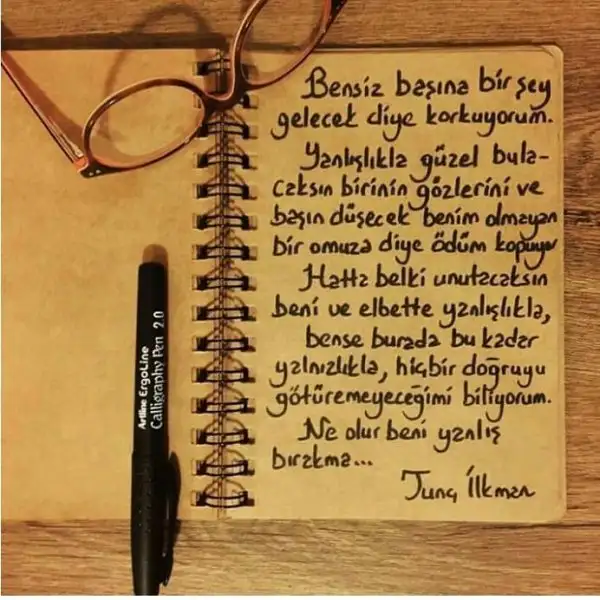 Bensiz başına bir şey
gelecek diye korkuyorum.
Yanlışlıkla güzel bula-
caksın birinin gözlerini ve
başın düşecek benim olmayan
bir omuza diye ödüm kopuyor
Hatta belki unutacaksın
beni ve elbette yanlışlıkla,
bense burada bu kadar
yalnızlıkla, hiçbir doğruyu
götüremeyeceğimi biliyorum.
Ne olur beni yanlış
bırakma...
Tunç İlkman
Artline ErgoLine
Calligraphy Pen 2.0